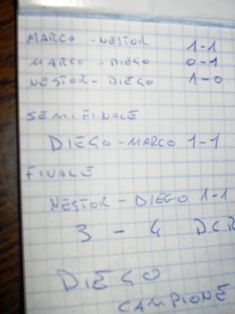 MARCO - NESTOR 1-1
MARCO - DIEGO 0-1
NESTOR - DIEGO 1-0
SEMIFINALE
DIEGO - MARCO 1-1
FINALE
NESTOR - DIEGO 1-1
3 - 4 D.C.R
DIEGO
CAMPIONE